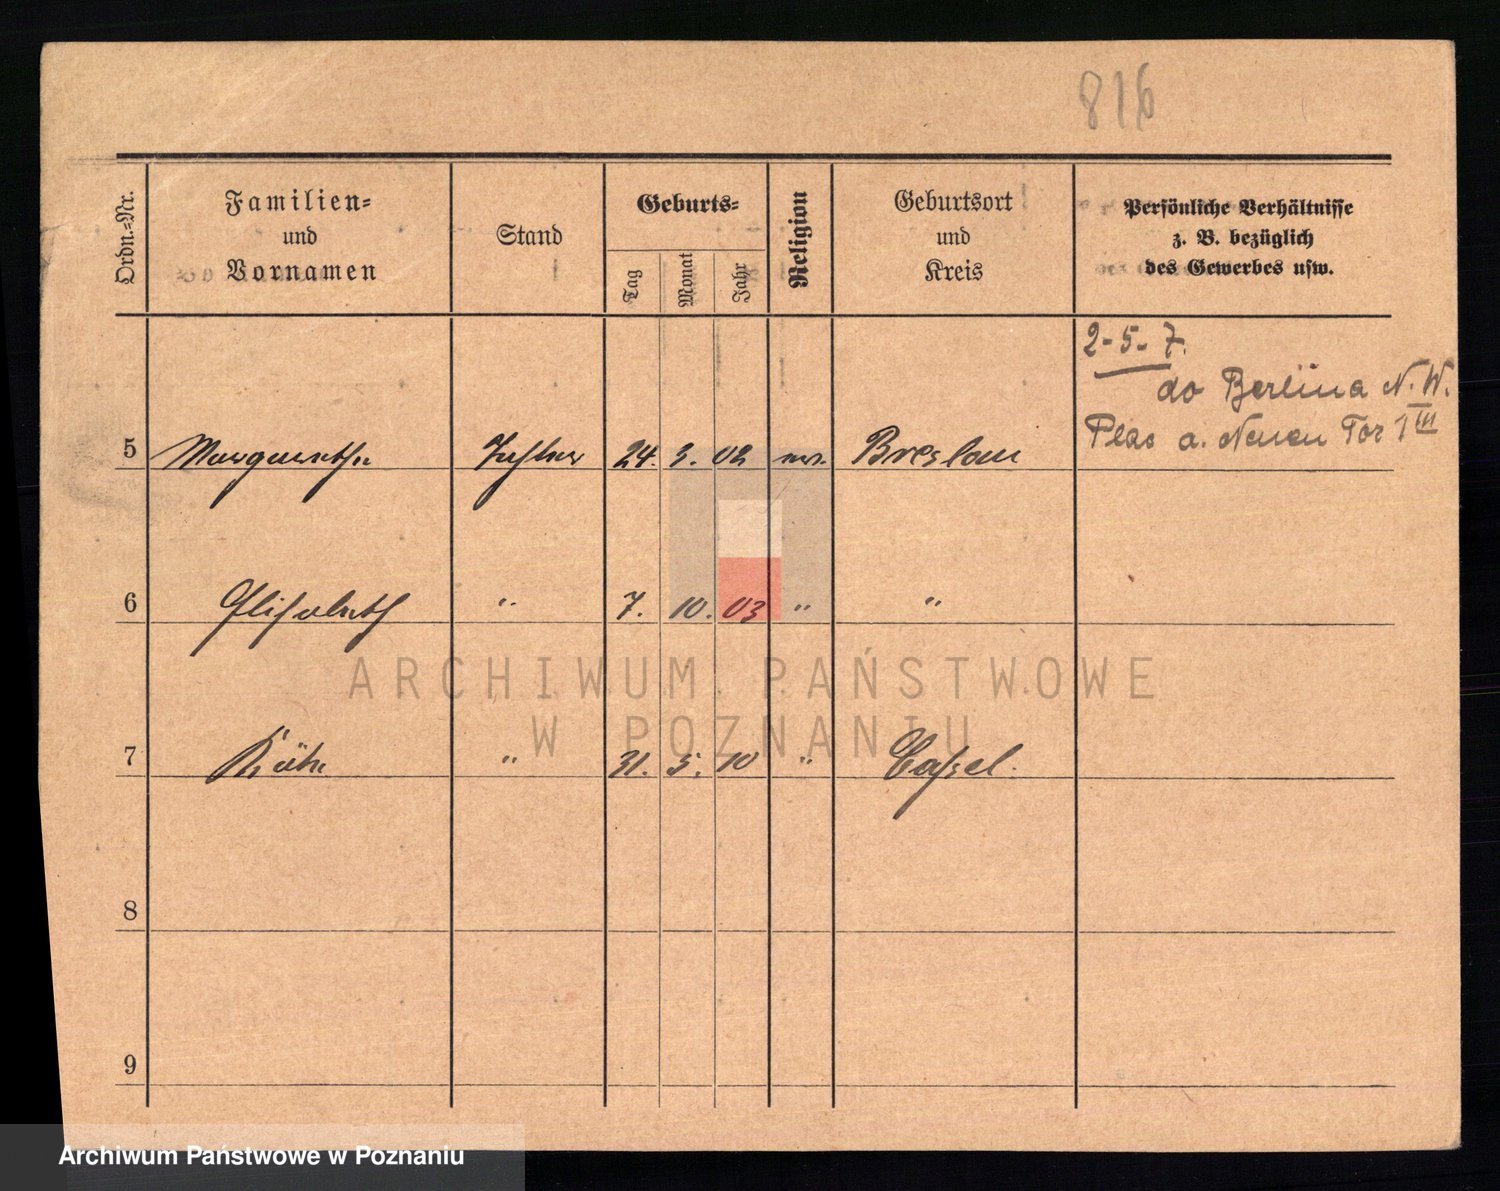 816
Ordn.-Nr.
Familien-
und
Vornamen
Stand
Geburts-
Tag
Monat
Jahr
Religion
Geburtsort
und
Kreis
Persönliche Verhältnisse
z. B. bezüglich
des Gewerbes usw.
2-5-7.
do Berlina N.W.
Plac a. Neuen Tor 1 III
5 Margarethe Tochter 24. 3. 02 ev. Breslau
6 Elisabeth " 7. 10. 03 " "
7 Käthe " 31. 5. 10 " Cassel.
8
9
ARCHIWUM PAŃSTWOWE
W POZNANIU
Archiwum Państwowe w Poznaniu